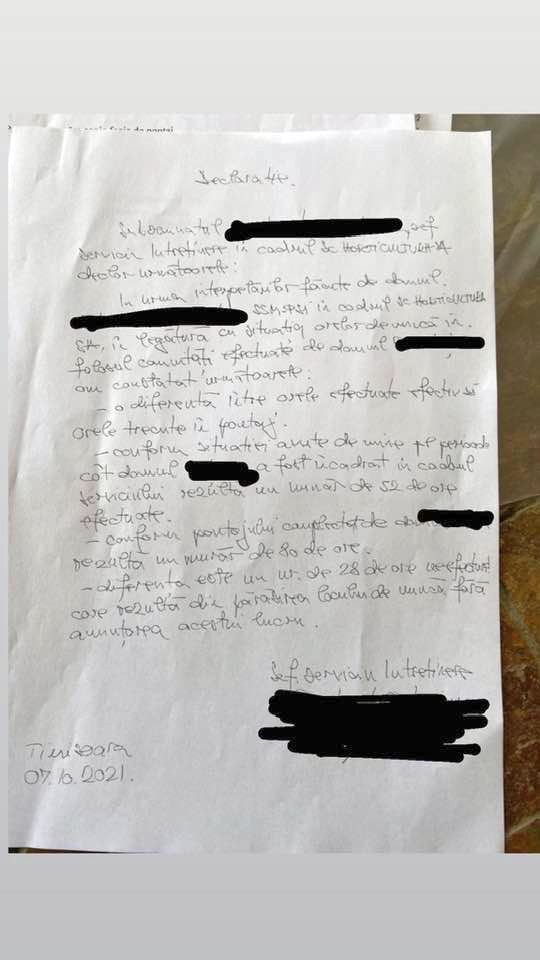 Declaratie.
Subsemnatul , sef
serviciu Intretinere in cadrul SC HORTICULTURA SA
declar următoarele:
In urma interpretărilor făcute de domnul
SSM, PSI in cadrul SC HORTICULTURA
SA, in legătură cu situatia orelor de muncă in
folosul comunităti efectuate de domnul
am constatat următoarele:
- o diferentă între orele efectuate efectiv si
orele trecute in pontaj.
- conform situatiei avute de mine pe perioada
cât domnul a fost încadrat in cadrul
serviciului rezultă un număr de 52 de ore
efectuate.
- conform pontajului completat de
rezultă un număr de 80 de ore.
- diferenta este un nr. de 28 de ore neefectuate
care rezultă din părăsirea locului de muncă fără
anuntarea acestui lucru.
Sef serviciu Intretinere
Timisoara
07.10.2021.